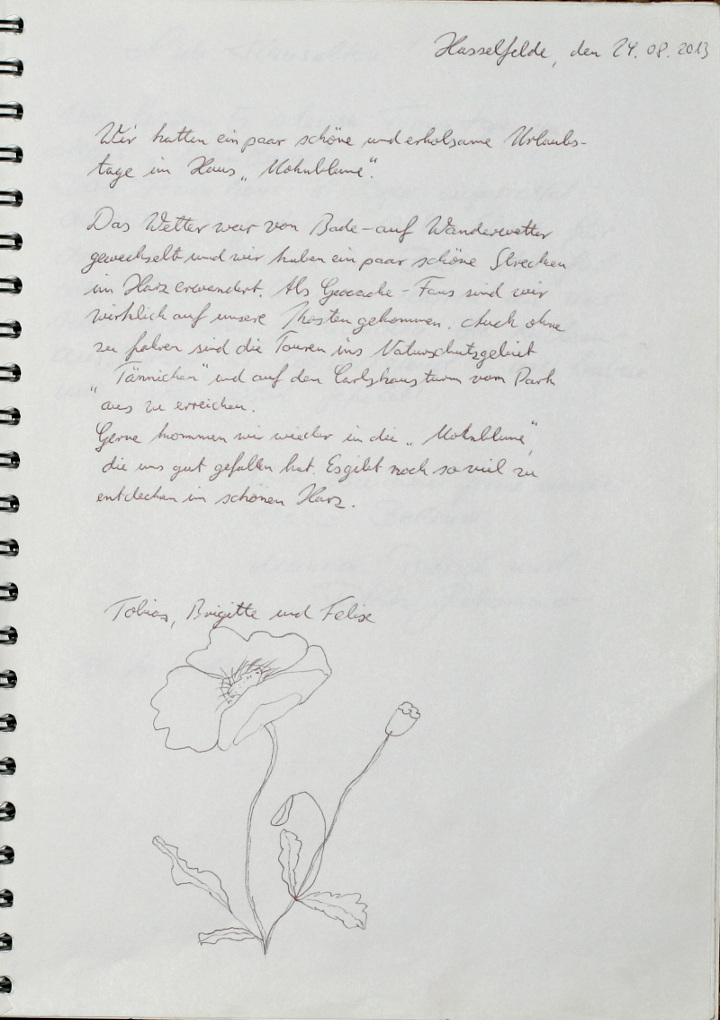 Hasselfelde, den 24.08.2013
Wir hatten ein paar schöne und erholsame Urlaubs-
tage im Haus „Mohnblume“.
Das Wetter war von Bade- auf Wanderwetter
gewechselt und wir haben ein paar schöne Strecken
im Harz erwandert. Als Geocache-Fans sind wir
wirklich auf unsere Kosten gekommen. Auch ohne
zu fahren sind die Touren ins Naturschutzgebiet
„Tännichen“ und auf den Carlshausturm vom Park
aus zu erreichen.
Gerne kommen wir wieder in die „Mohnblume“,
die uns gut gefallen hat. Es gibt noch so viel zu
entdecken im schönen Harz.
Tobias, Brigitte und Felix